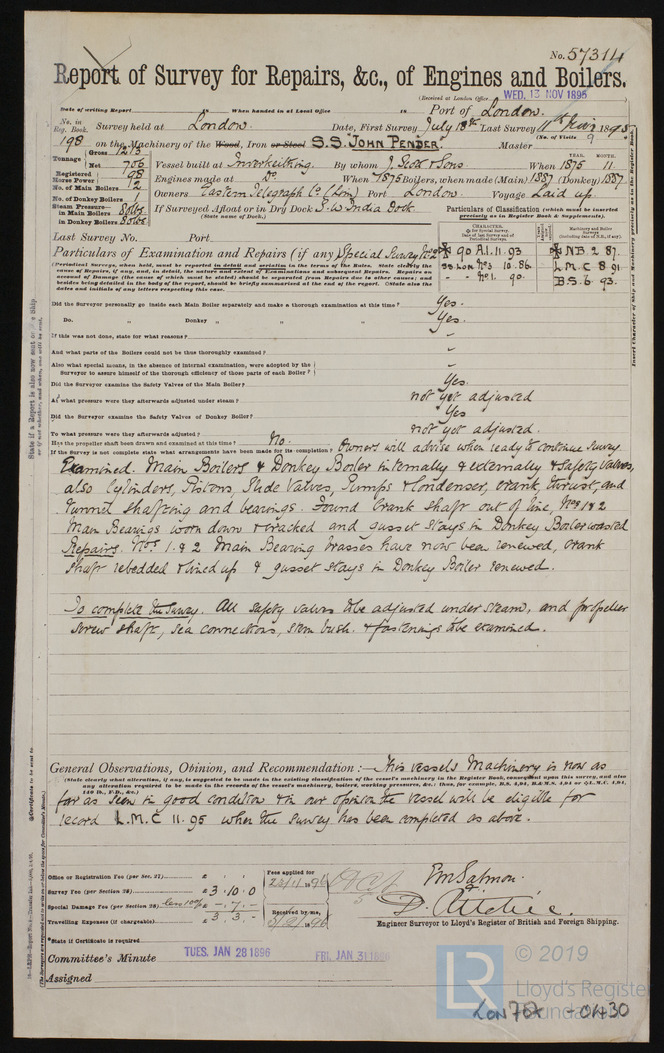 No. 57314
Report of Survey for Repairs, &c., of Engines and Boilers.
(Received at London Office WED. 13 NOV 1895)
State of writing Report 18 When handed in at Local Office 18 Port of London.
No. in Reg. Book. Survey held at London. Date, First Survey July 18th Last Survey 11th 1895
(No. of Visits 9)
198 on the Machinery of the Wood, Iron or Steel S.S. "JOHN PENDER." Master
Tonnage Gross 1213
Net 706
Vessel built at Inverkeithing. By whom J. Scott & Sons When YEAR. 1875 MONTH. 11
Registered Horse Power 98
Engines made at Do. When 1875 Boilers, when made (Main) 1887 (Donkey) 1887
No. of Main Boilers 2
No. of Donkey Boilers
Owners Eastern Telegraph Co. (Lim) Port London. Voyage Laid up.
Steam Pressure in Main Boilers 80lbs
in Donkey Boilers 80lbs
If Surveyed Afloat or in Dry Dock S.W. India Dock.
(State name of Dock.)
Particulars of Classification (which must be inserted precisely as in Register Book & Supplements).
Last Survey No. Port
Particulars of Examination and Repairs (if any) Special Survey No. 2
90 A.1. 11.93
SS Lon No 3 10.86.
- - No 1. 90.
N.B 2. 87.
L.M.C 8.91
B.S. 6. 93.
(Periodical Surveys, when held, must be reported in detail and seriatim in the terms of the Rules. State clearly the
cause of Repairs, if any, and, in detail, the nature and extent of Examinations and consequent Repairs. Repairs on
account of Damage (the cause of which must be stated) should be separated from Repairs due to other causes; and
besides being detailed in the body of the report, should be briefly summarised at the end of the report. State also the
dates and initials of any letters respecting this case.
Did the Surveyor personally go inside each Main Boiler separately and make a thorough examination at this time? Yes.
Do. " Donkey " " " Yes.
If this was not done, state for what reasons? "
And what parts of the Boilers could not be thus thoroughly examined? "
Also what special means, in the absence of internal examination, were adopted by the
Surveyor to assure himself of the thorough efficiency of those parts of each Boiler?
Did the Surveyor examine the Safety Valves of the Main Boiler? Yes.
At what pressure were they afterwards adjusted under steam? not yet adjusted
Did the Surveyor examine the Safety Valves of Donkey Boiler? Yes
To what pressure were they afterwards adjusted? not yet adjusted.
Has the propeller shaft been drawn and examined at this time? No.
If the Survey is not complete state what arrangements have been made for its completion? Owners will advise when ready to continue survey.
Examined. Main Boilers & Donkey Boiler internally & externally & safety valves,
also Cylinders, Pistons, Slide Valves, Pumps & Condenser, crank, thrust, and
tunnel shafting and bearings. Found Crank shaft out of line, Nos 1 & 2
Main Bearings worn down & cracked and gusset stays in Donkey Boiler wasted
Repairs. Nos 1 & 2 Main Bearing brasses have now been renewed, crank
shaft rebedded & lined up & gusset stays in Donkey Boiler renewed.
To complete the survey. All safety valves to be adjusted under steam, and propeller
screw shaft, sea connections, stern bush & fastenings to be examined.
General Observations, Opinion, and Recommendation:— This vessels Machinery is now as
(State clearly what alteration, if any, is suggested to be made in the existing classification of the vessel's machinery in the Register Book, consequent upon this survey, and also
any alteration required to be made in the records of the vessel's machinery, boilers, working pressures, &c.: thus, for example, B.S. 4,94, B.&M.S. 4,94 or L.M.C. 4,94,
140 lb., F.D., &c.)
far as seen in good condition & in our opinion the vessel will be eligible for
record L.M.C 11.95 when the survey has been completed as above.
Office or Registration Fee (per Sec. 27) £ : :
Survey Fee (per Section 28) £ 3 : 10 : 0
Special Damage Fee (per Section 28) less 10% £ - : 7 : -
Travelling Expenses (if chargeable) £ 3 : 3 : -
Fees applied for
Received by me,
Em Salmon.
D. Ritchie.
Engineer Surveyor to Lloyd's Register of British and Foreign Shipping.
State if Certificate is required
Committee's Minute TUES. JAN 28 1896 FRI. JAN 31 1896
Assigned
LR © 2019
Lloyd's Register
Foundation
LON 702 - 0430